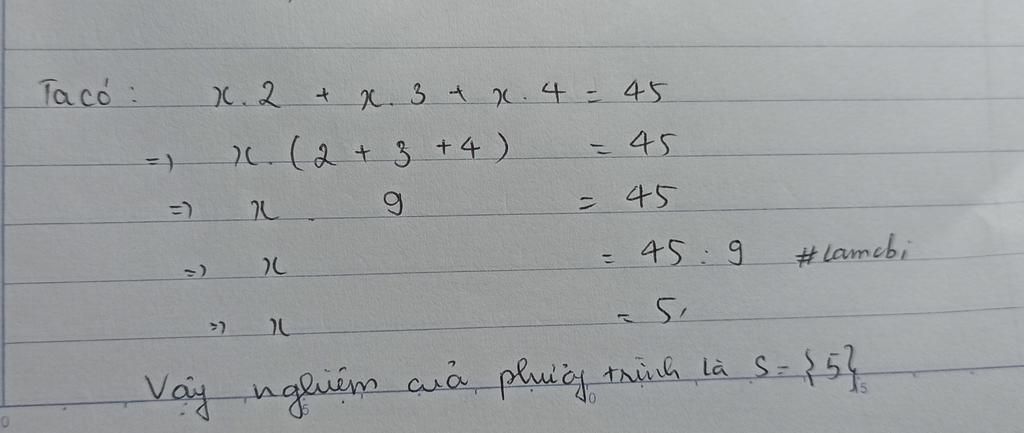 Ta có: x.2 + x.3 + x.4 = 45
=> x.(2+3+4) = 45
=> x . 9 = 45
=> x = 45 : 9 #lamcbi
=> x = 5,
Vậy nghiệm của phương trình là S = {5}